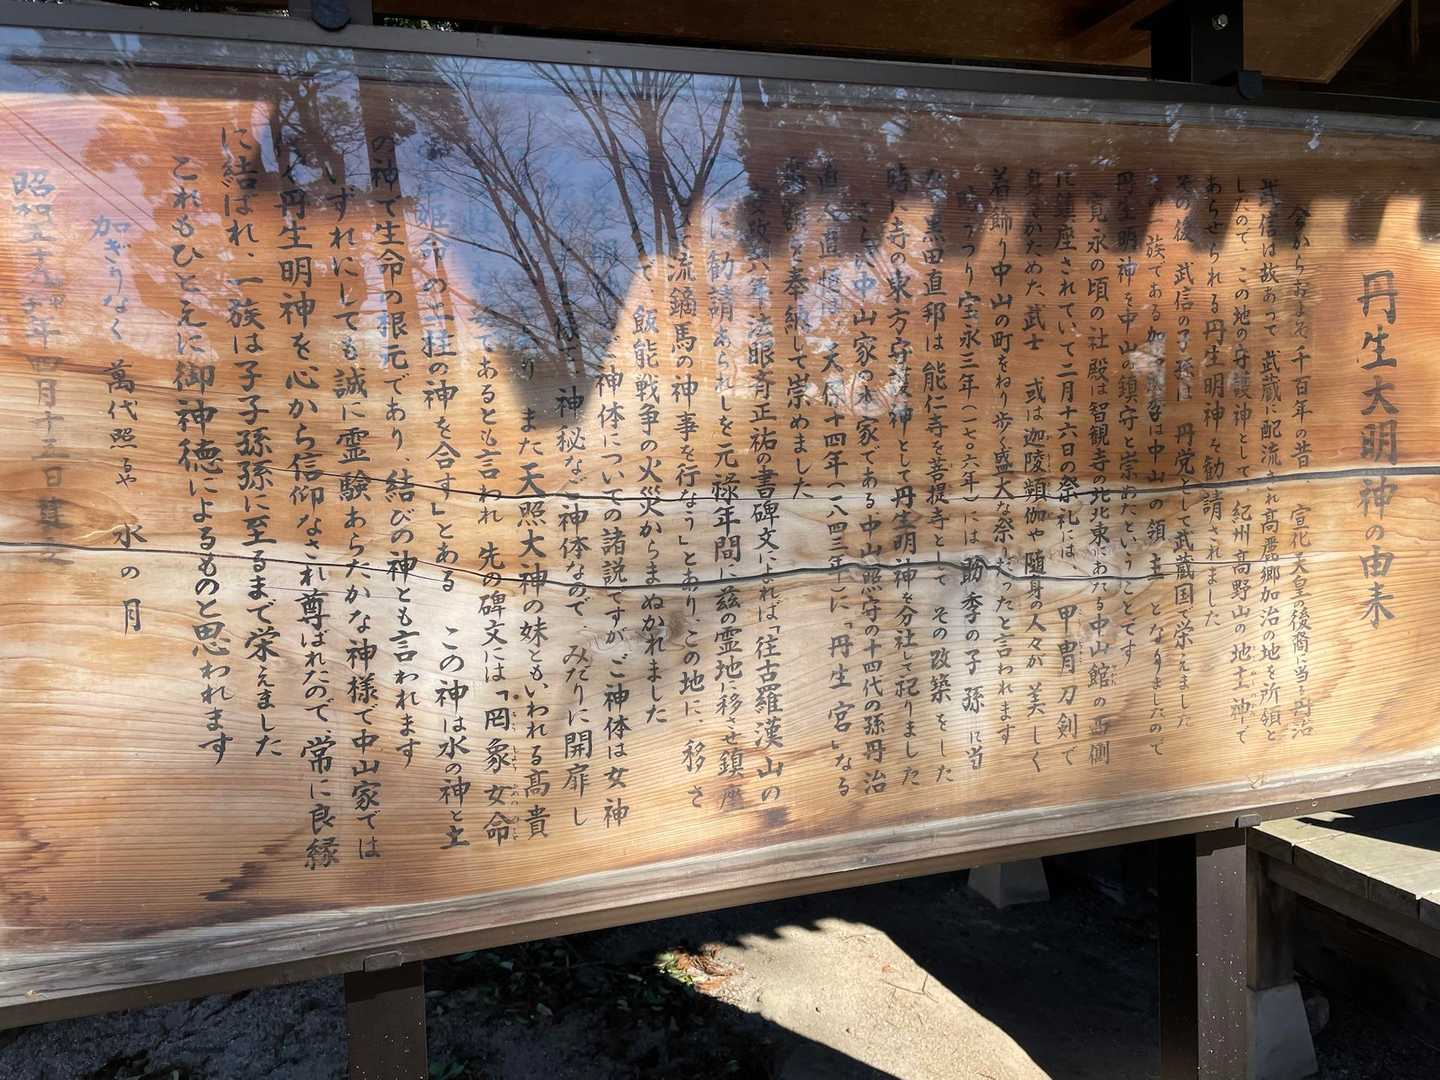 丹生大明神の由来
今からおよそ千百年の昔、宣化天皇の後裔に当る丹治
武信は故あって、武蔵に配流され高麗郷加治の地を所領と
したので、この地の守護神として、紀州高野山の地主神で
あらせられる丹生明神を勧請されました
その後、武信の子孫は、丹党として武蔵国で栄えました
一族である加治は中山の領主となりましたので
丹生明神を中山の鎮守と崇めたということです
寛永の頃の社殿は智観寺の北北東にあたる中山館の西側
に鎮座されていて二月十六日の祭礼には、甲冑刀剣で
身をかためた武士 或は迦陵頻伽や随身の人々が美しく
着飾り中山の町をねり歩く盛大な祭だったと言われます
時うつり宝永三年(一七〇六年)には勝季の子孫に当
る黒田直邦は能仁寺を菩提寺として その改築をした
時に寺の東方守護神として丹生明神を分社して祀りました
さらに中山家の本家である、中山照守の十四代の孫丹治
直は天保十四年(一八四三年)に「丹生宮」なる
を奉納して崇めました
政六年法眼斉正祐の書碑文によれば「往古羅漢山の
に勧請あられしを元禄年間に茲の霊地に移させ鎮座
て流鏑馬の神事を行なう」とあり、この地に、移さ
て飯能戦争の火災からまぬかれました
ご神体についての諸説ですが、ご神体は女神
神秘なご神体なので、みだりに開扉し
また天照大神の妹ともいわれる高貴
であるとも言われ 先の碑文には「罔象女命
姫命の二柱の神を合す」とある この神は水の神と土
の神で生命の根元であり、結びの神とも言われます
いずれにしても誠に霊験あらたかな神様で中山家では
丹生明神を心から信仰なされ尊ばれたので、常に良縁
に結ばれ、一族は子子孫孫に至るまで栄えました
これもひとえに御神徳によるものと思われます
加ぎりなく 萬代照らや 水の月
昭和五十九年四月十五日建之